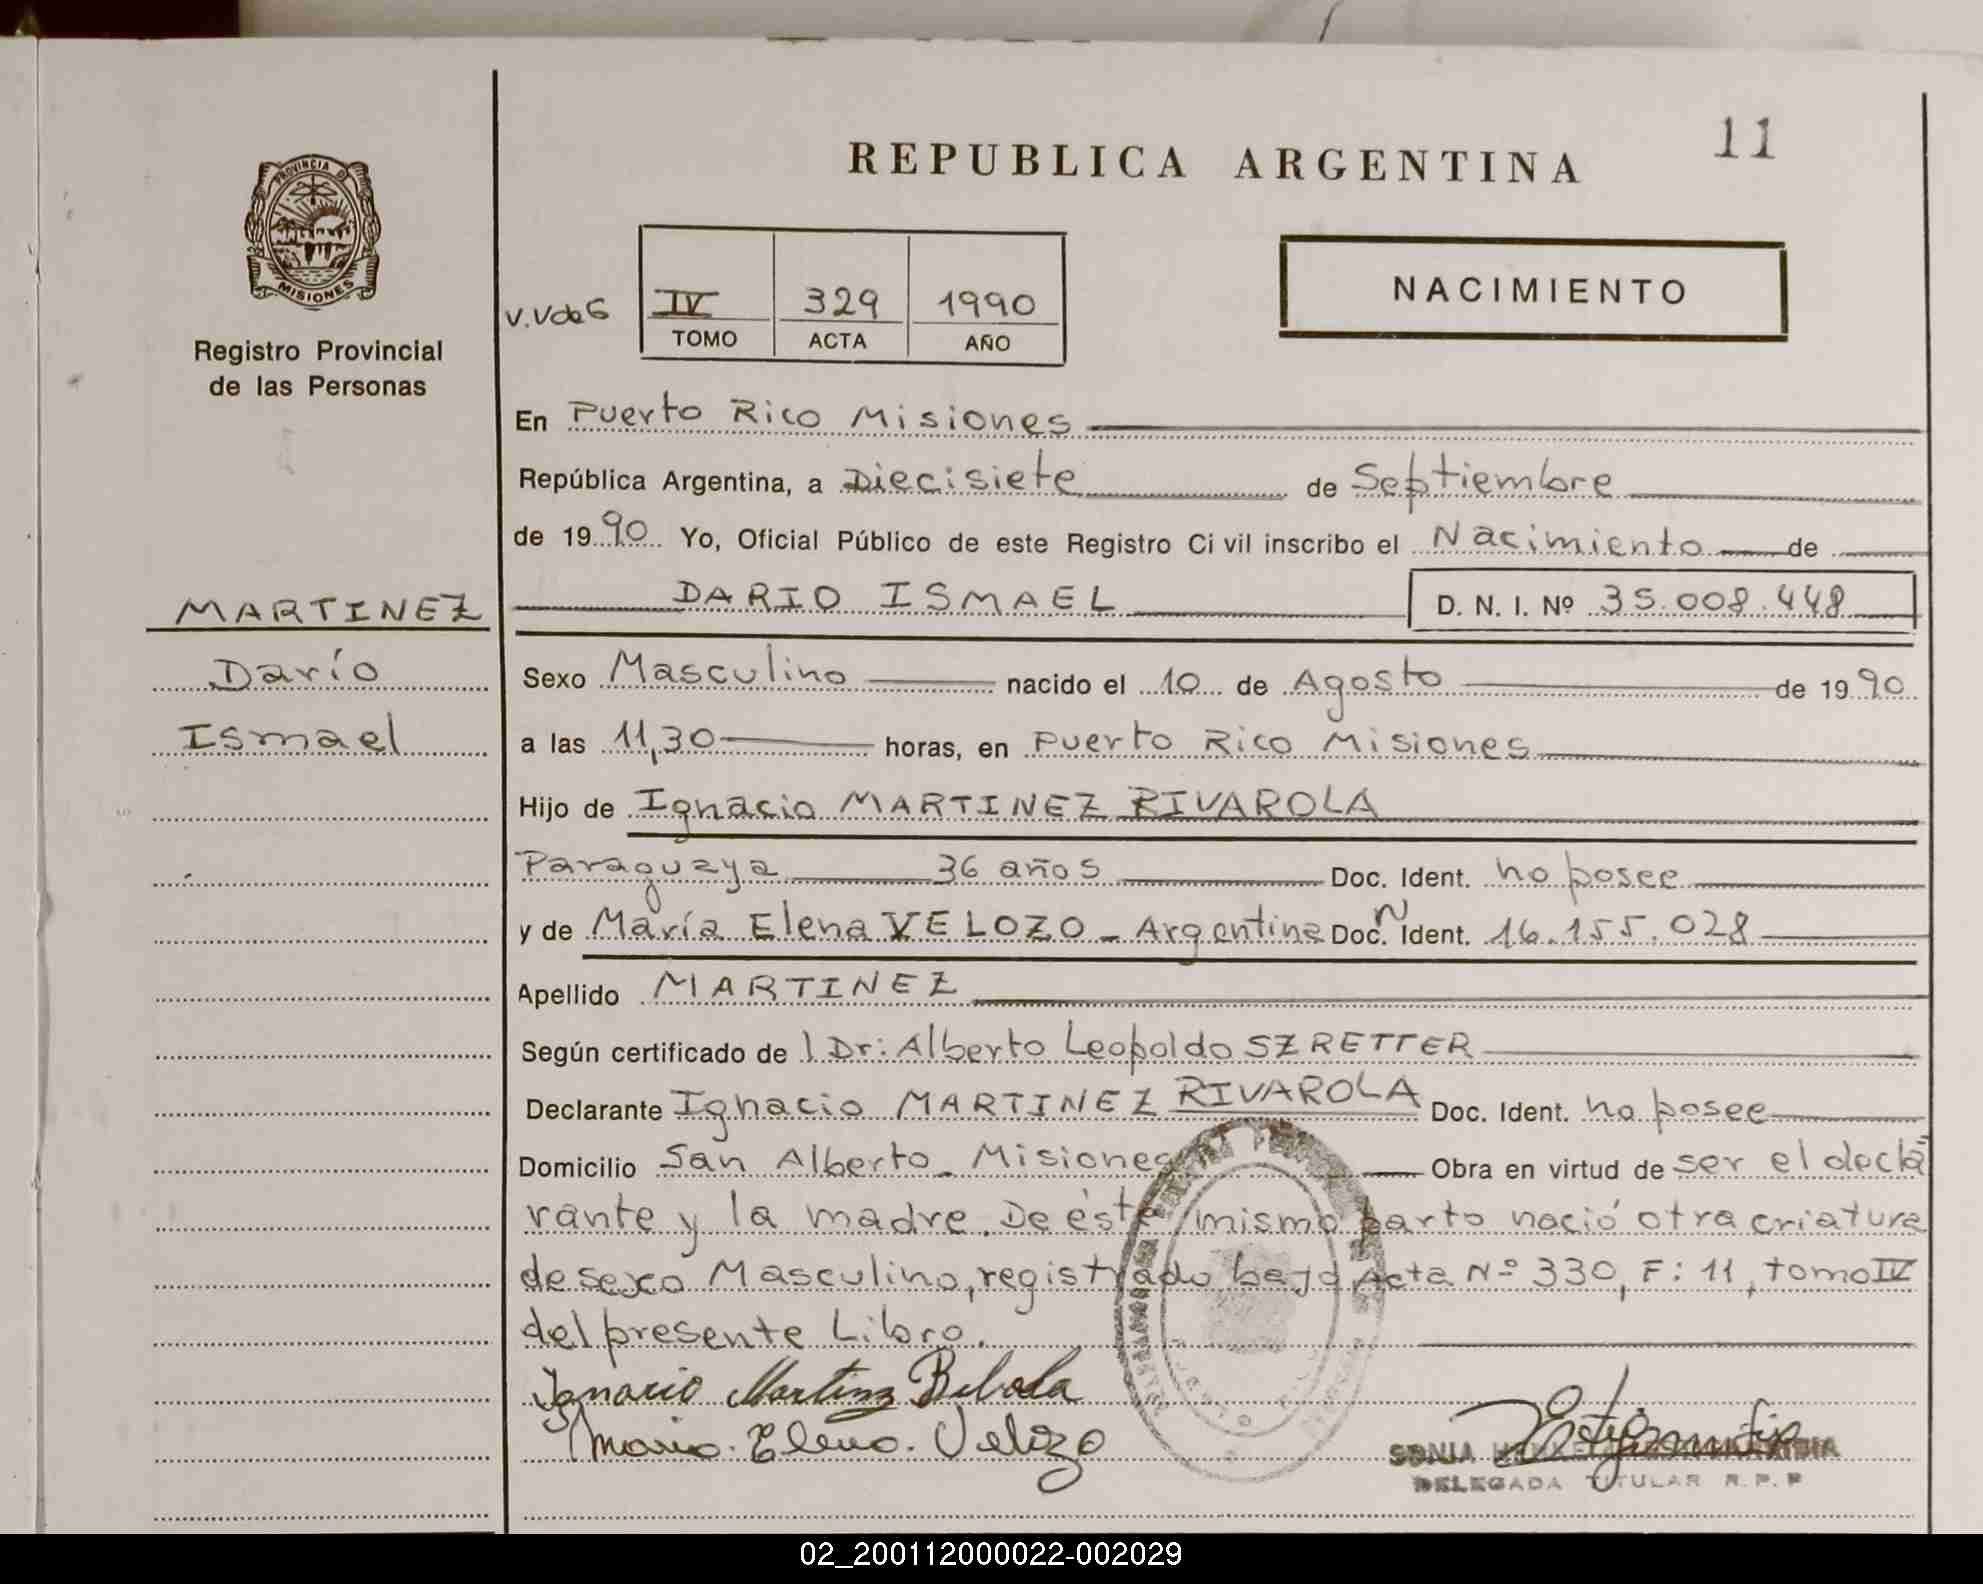 11
REPUBLICA ARGENTINA
PROVINCIA DE
MISIONES
Registro Provincial
de las Personas
NACIMIENTO
V.VdeG
IV 329 1990
TOMO ACTA AÑO
En Puerto Rico Misiones
República Argentina, a Diecisiete de Septiembre
de 1990 Yo, Oficial Público de este Registro Civil inscribo el Nacimiento de
DARIO ISMAEL D. N. I. Nº 35.008.448
MARTINEZ
Darío
Ismael
Sexo Masculino nacido el 10 de Agosto de 1990
a las 11,30 horas, en Puerto Rico Misiones
Hijo de Ignacio MARTINEZ RIVAROLA
Paraguaya 36 años Doc. Ident. no posee
y de María Elena VELOZO - Argentina Doc. N Ident. 16.155.028
Apellido MARTINEZ
Según certificado de l Dr: Alberto Leopoldo SZRETTER
Declarante Ignacio MARTINEZ RIVAROLA Doc. Ident. no posee
Domicilio San Alberto - Misiones Obra en virtud de ser el decla
rante y la madre. De éste mismo parto nació otra criatura
de sexo Masculino, registrado bajo Acta Nº 330, F: 11, tomo IV
del presente Libro.
Ignacio Martinez Bibola
Maria. Elena. Velozo
SONIA
DELEGADA TITULAR R.P.P
02_200112000022-002029